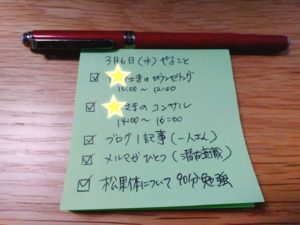 3月6日(水)やること
☑ さまのカウンセリング
10:00 〜 12:00
☑ さまのコンサル
14:00 〜 16:00
☑ ブログ1記事(一人さん)
☑ メルマガひとつ(潜在意識)
☑ 松果体について90分勉強